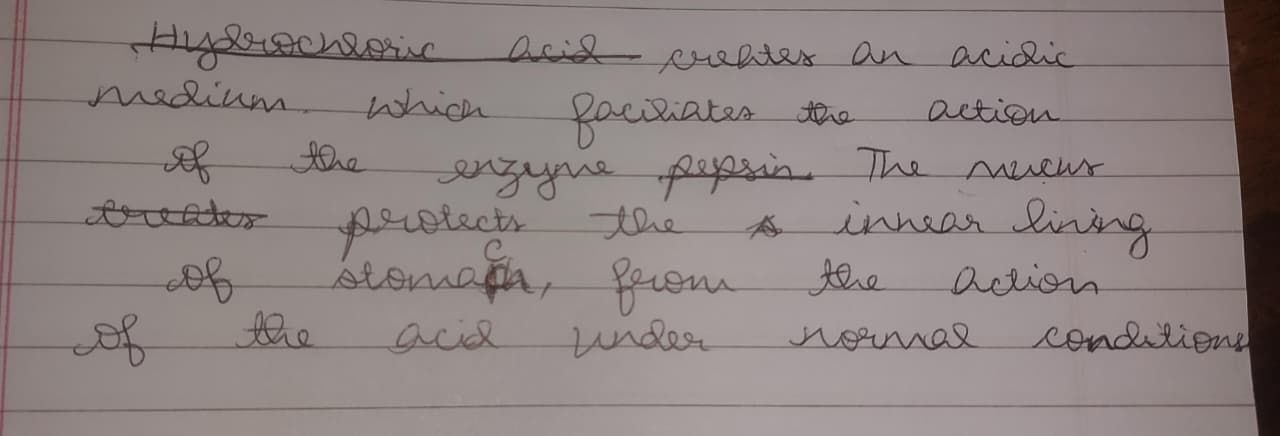 Hydrochloric acid creates an acidic
medium. which faciliates the action
of the enzyme pepsin. The mucus
treates protects the s innear lining
of stomach, from the action
of the acid under normal conditions